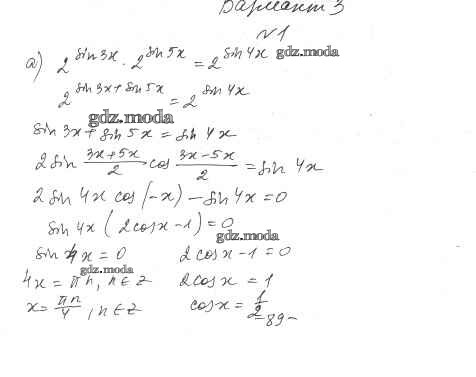 Вариант 3
№1
а) 2^sin3x · 2^sin5x = 2^sin4x gdz.moda
2^sin3x+sin5x = 2^sin4x
gdz.moda
sin3x + sin5x = sin4x
2sin (3x+5x)/2 cos (3x-5x)/2 = sin4x
2sin4x cos(-x) - sin4x = 0
sin4x(2cosx - 1) = 0
gdz.moda
sin4x = 0 2cosx - 1 = 0
gdz.moda
4x = πn, n∈z 2cosx = 1
x = πn/4, n∈z cosx = 1/2
-89-